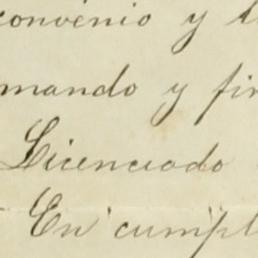 convenio y l
mando y fir
Licenciado
En cumpl